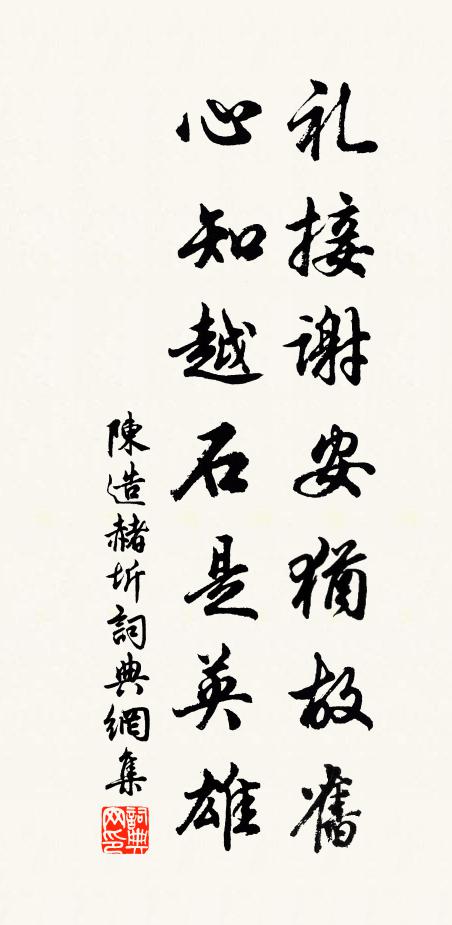 礼接谢安犹故旧
心知越石是英雄
陳造赭圻詞典網集
詞典网印